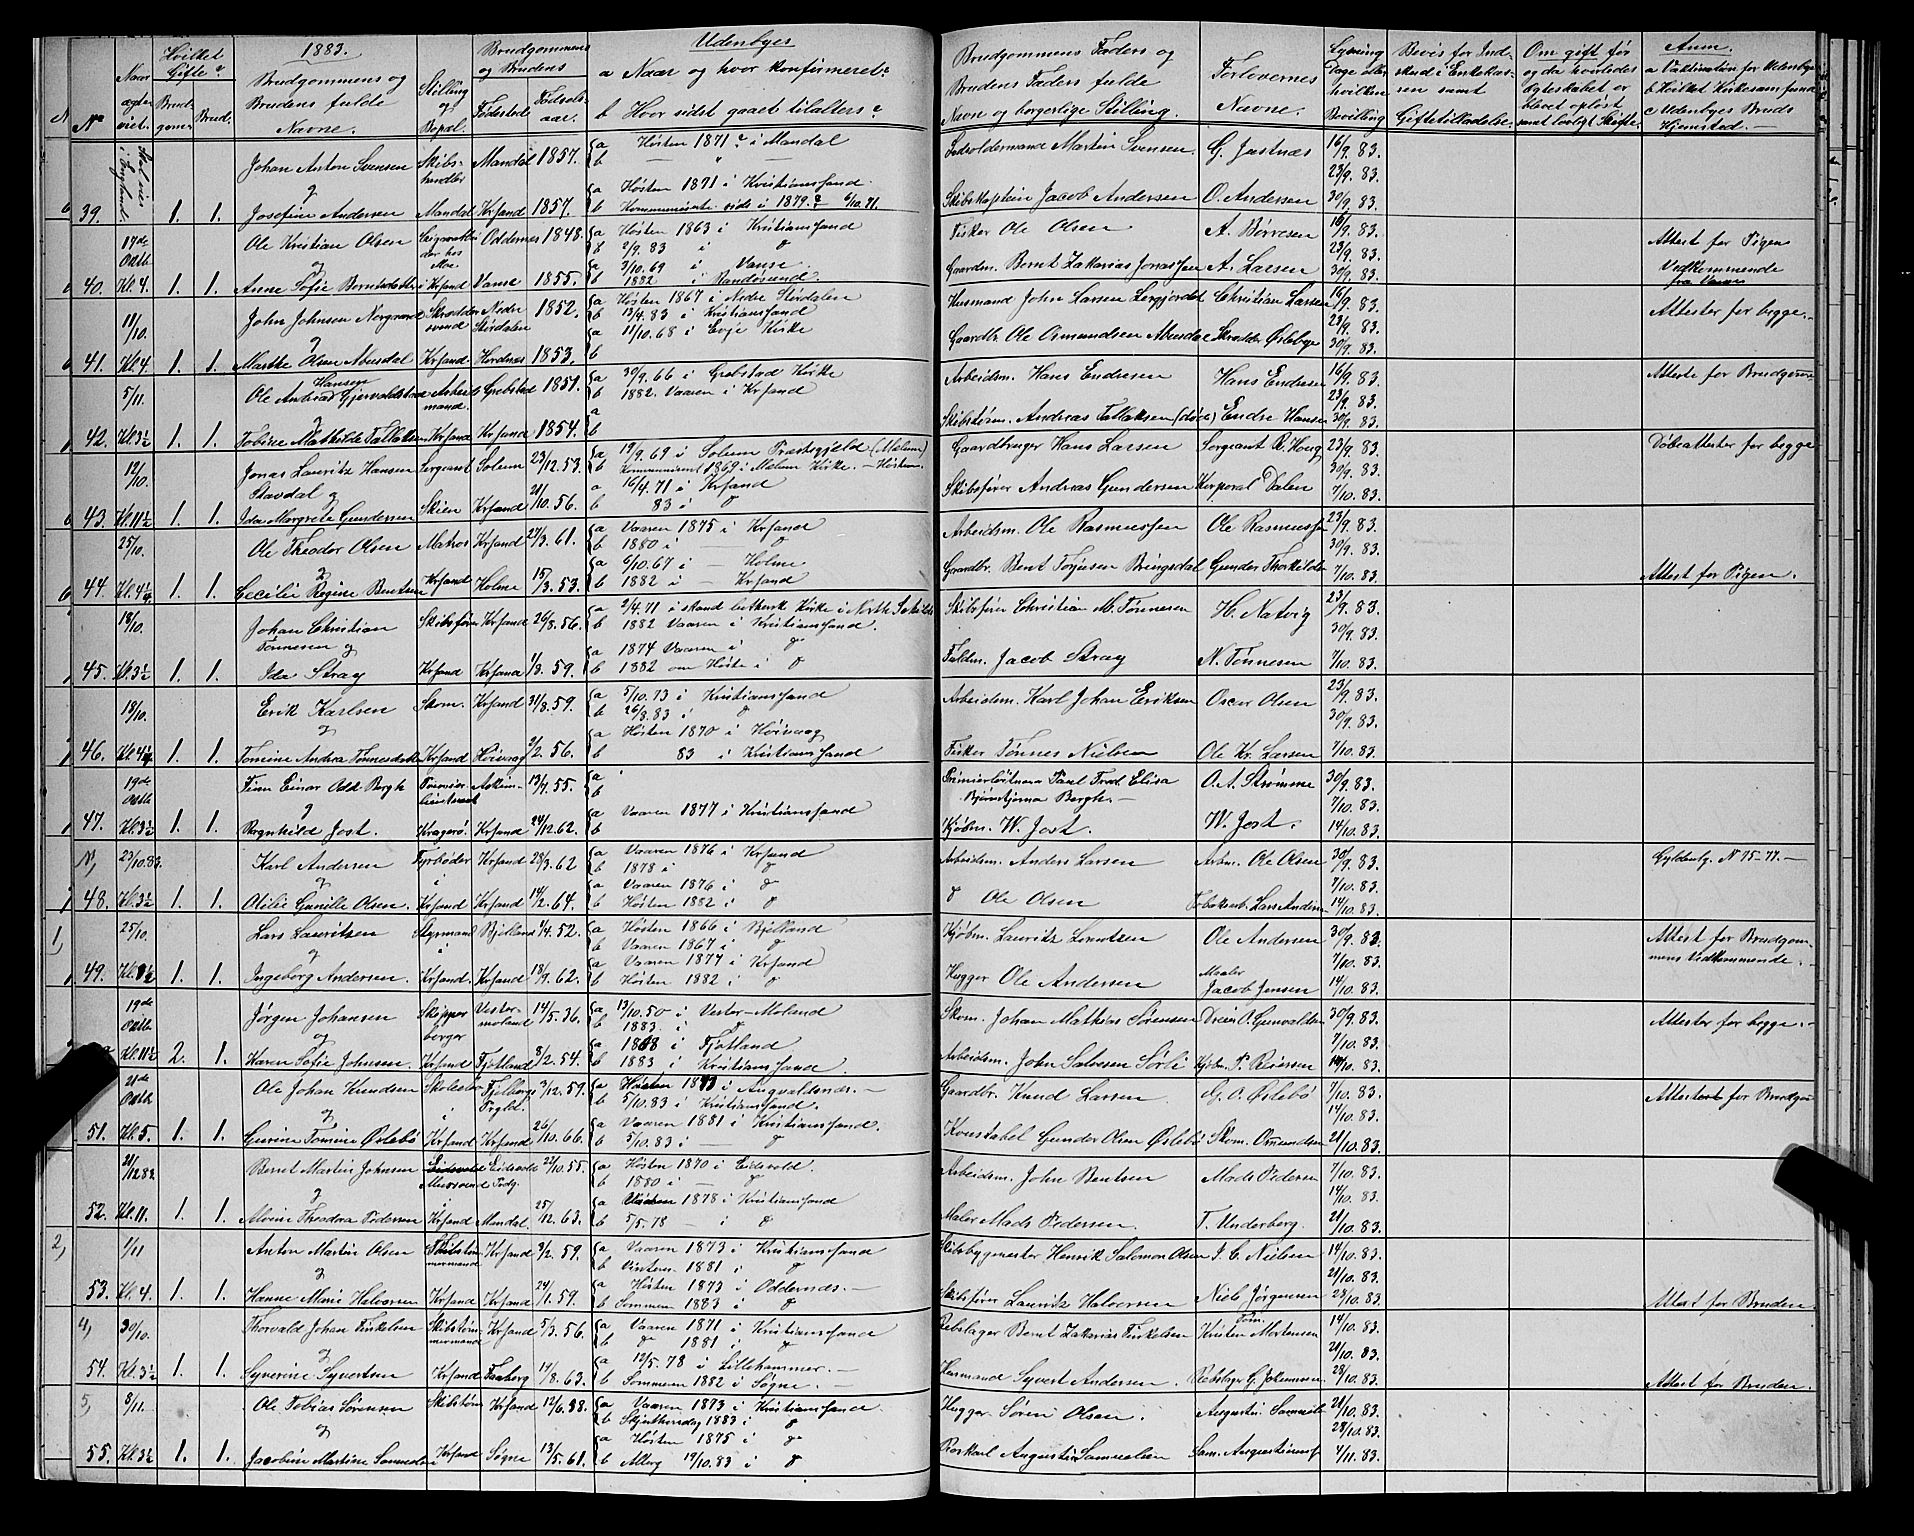 1883.
Nº
Naar ægteviet.
Hvilket Gifte?
Brudgomens
Brud.
Brudgommens og Brudens fulde Navne.
Stilling og Bopæl.
Brudgommens og Brudens
Fødested
Fødselsaar.
Udenbyes
a Naar og hvor konfirmeret?
b Hvor sidst gaaet tilalters?
Brudgommens Faders og Brudens Faders fulde Navne og borgerlige Stilling.
Forlovernes Navne.
Lysningsdage eller hvilken Bevilling
Bevis for Indskud i Enkekassen samt Giftetilladelse.
Om gift før og da hvorledes Ægteskabet er blevet opløst samt lovligt Skifte.
Anm.
a Vaktination for Udenbyes
b Hvilket Kirkesamfund
c Udenbyes Bruds Hjemsted.
39. 1. 1.
Johan Anton Svensen Skibshandler Mandal 1857. a Høsten 1871? i Mandal
G. Jastnæs 16/9. 83.
23/9. 83.
Josefine Andersen Mandal Krsand 1857. a Høsten 1871 i Kristianssand
Skibskaptein Jacob Andersen O. Andersen 30/9. 83.
17de Octb Kl. 4. 40. 1. 1.
Ole Kristian Olsen Oddernes 1848. a Høsten 1863 i Kristianssand
b 2/9. 83 i do
Fisker Ole Olsen A. Børresen 16/9. 83.
23/9. 83.
Anne Sofie Berntsdatter Krsand Vanse 1855. a 3/10. 69 i Vanse
b 1882 i Randøsund
Gaardm. Bernt Zakarias Jonassen A. Larsen 30/9. 83.
Attest for Pigen Vedkommende fra Vanse
11/10. Kl. 4. 41. 1. 1.
John Johnsen Norgaard Skræddersvend Nedre Stördalen 1852. a Høsten 1867 i Nedre Stördalen
b 13/4. 83 i Kristianssand
Husmand John Larsen Christian Larsen 16/9. 83.
23/9. 83.
Marthe Olsen Abusdal Krsand. Hordnes 1853. a 11/10. 68 i Evje Kirke
b
Gaardbr. Ole Osmundsen Abusdal Skrædder Østebye 30/9. 83.
Attester for begge.
5/11. Kl. 3½ 42. 1. 1.
Ole Andreas Hansen Gjervoldstad Arbeidsmand. Grebstad 1851. a 30/9. 66 i Grebstad Kirke
b 1882. Vaaren i Krsand
Arbeidsm. Hans Endresen Hans Endresen 16/9. 83.
23/9. 83.
Tobine Mathilde Tallaksen Krsand Krsand 1854. a
b
Skibstøm. Andreas Tallaksen (død) Endre Hansen 30/9. 83.
Atteste for Brudgom
12/10. Kl. 11½ 43. 1. 1.
Jonas Lauritz Hansen Stavdal og Sergeant Solum 23/12. 53. a 19/9. 69 i Solum Præstegjeld (Melum)
b Kommuniceret 1869 i Melum Kirke. - Høsten
Gaardbruger Hans Larsen Sergeant R. Houg 23/9. 83.
30/9. 83.
Ida Margrete Gundersen Skien Krsand 21/10. 56. a 16/4. 71 i Krsand
b 83 i do
Skibsfører Andreas Gundersen Korporal Dalen 7/10. 83.
Døbeattester for begge
25/10. Kl. 4¼ 44. 1. 1.
Ole Theodor Olsen Matros Krsand 27/3. 61. a Vaaren 1875 i Krsand
b 1880 i —
Arbeidsm. Ole Rasmussen Ole Rasmussen 23/9. 83.
30/9. 83.
Cecilie Regine Bentsen Krsand Holme 15/3. 53. a 6/10. 67 i — Holme
b 1882 i — Krsand
Gaardbr. Bent Torjusen Bringsdal Gunder Thorkildsen 7/10. 83.
Attest for Pigen.
18/10. Kl. 3½ 45. 1. 1.
Johan Christian Tønnesen og Skibsfører Krsand 26/8. 56. a 2/4. 71 i skand. luthersk Kirke i North Schilds
b 1882 Vaaren i Kristianssand.
Skibsfører Christian M. Tønnesen H. Natvig 23/9. 83.
30/9. 83.
Ida Stray Krsand Krsand 1/3. 59. a 1874 Vaaren i do
b 1882 om Høsten i do
Fuldm. Jacob Stray N. Tønnesen 7/10. 83.
18/10. Kl. 4¼ 46. 1. 1.
Erik Karlsen Skom. Krsand 31/8. 59. a 5/10. 73 i Kristianssand
b 26/8. 83 i do
Arbeidsm. Karl Johan Eriksen Oscar Olsen 23/9. 83.
30/9. 83.
Tomine Andrea Tønnesdatter Krsand Høivaag 2/2. 56. a Høsten 1870 i Høivaag
b 83 i Kristianssand
Fisker Tønnes Nielsen Ole Kr. Larsen 7/10. 83.
19de Octb Kl. 3½ 47. 1. 1.
Finn Einar Odd Bergh 13/9. 55. a
b
Premierløitnant Paul Fred. Elisa Bjørnstjerna Bergh. — O. A. Strømme 30/9. 83.
7/10. 83.
Ragnhild Jost. Kragerø. Krsand 24/12. 62. a Vaaren 1877 i Kristianssand
b
Kjøbm. W. Jost. W. Jost. 14/10. 83.
23/10. 83. Kl. 3½ 48. 1. 1.
Karl Andersen Fyrbøder Krsand 28/3. 62 a Vaaren 1876 i Krsand
b 1878 i do
Arbeidsm. Anders Larsen Arbm. Ole Olsen 30/9. 83.
7/10. 83.
Otilie Gunille Olsen. Krsand Krsand 14/2. 64. a Vaaren 1876 i do
b Høsten 1882 i do
do Ole Olsen Lars Andersen 14/10. 83.
Gyldenlg. N 75-77. —
25/10. 49. 1. 1.
Lars Lauritsen Styrmand Bjelland 1/4. 52. a Høsten 1866 i Bjelland
b Vaaren 1867 i do
Kjøbm. Lauritz Lorentsen Ole Andersen 30/9. 83.
7/10. 83.
Ingeborg Andersen Krsand. Krsand 18/9. 62. a Vaaren 1877 i Krsand
b Høsten 1882 i do
Hugger Ole Andersen Maaler Jacob Jensen 14/10. 83.
Attest for Brudgommens Vedkommende.
19de Octb Kl. 11½ 2. 1.
Jørgen Johansen Skipper Vestermoland 14/5. 36. a 13/10. 50 i Vester-Moland
b 1883. i do
Skom. Johan Mathias Sørensen Dreier O. Gunvaldsen 30/9. 83.
7/10. 83.
Karen Sofie Johnsen Krsand Fjotland 8/2. 54. a 1868 i Fjotland
b 1883 i Kristianssand.
Arbeidsm. John Salvesen Sørli Kjøbm. P. Reiersen 14/10. 83.
Attester for begge. —
21de Octb Kl. 5. 51. 1. 1.
Ole Johan Knudsen Fjelbergs Prgld. 3/12. 59. a Høsten 1873 i Augvaldsnæs. —
b 5/10. 83 i Kristianssand.
Gaardbr. Knud Larsen G. O. Østebø 7/10. 83.
14/10. 83.
Gurine Tomine Østebø Krsand Krsand 26/10. 66. a Vaaren 1881 i Kristianssand.
b 5/10. 83 i — do
Konstabel Gunder Olsen Østebø Skom. Omundsen 21/10. 83.
Attest for Brudgom
21/12 83 Kl. 11. 52. 1. 1.
Bernt Martin Johnsen Muursvend Eidsvold 22/10. 55. a Høsten 1870 i Eidsvold.
b 1880 i — do
Arbeidsm. John Bentsen Mads Pedersen 7/10. 83.
14/10. 83.
Alvine Theodora Pedersen Krsand Mandal 25/12. 63. a Vaaren 1878 i Kristianssand
b 5/5. 78 — i do
Maler Mads Pedersen. T. Underberg. 21/10. 83.
1/11 Kl. 4. 53. 1. 1.
Anton Martin Olsen Skibstømmermand Krsand 3/2. 59. a Vaaren 1873 i Kristianssand
b Vinteren 1881 i do
Skibsbygmester Henrik Salomon Olsen J. C. Nielsen 14/10. 83.
21/10. 83.
Hanne Marie Halvorsen Krsand Krsand 24/1. 59. a Høsten 1873 i Oddernæs. —
b Sommeren 1883 i do
Skibsfører Lauritz Halvorsen Niels Jørgensen 28/10. 83.
Attest for Bruden
30/10. Kl. 3½ 54. 1. 1.
Thorvald Johan Finkelsen Skibstømmermand Krsand 5/3. 56. a Vaaren 1871 i Kristianssand
b do 1881 i do
Rebslager Bernt Zakarias Finkelsen Tøm. Kristen Mortensen 14/10. 83.
21/10. 83.
Syverine Syvertsen Krsand Faaberg 17/8. 63. a 12/5. 78 i Lillehammer. —
b Sommeren 1882 i Søgne. —
Husmand Syvert Andersen. Rebslager G. Jokumsen 28/10. 83.
Attest for Bruden.
8/11. Kl. 3½ 55. 1. 1.
Ole Tobias Sørensen Skibstøm Krsand 12/6. 38. a Vaaren 1873 i Kristianssand
b Skjærthorsdag 1883 i do
Hugger Søren Olsen. Augusti. Samuels 21/10. 83.
28/10. 83.
Jacobine Martine Samuelsen Krsand Søgne 13/5. 61. a Høsten 1875 i do
b Alterg 19/10. 83 i do
Roskarl Augustin Samuelsen Sam. Augustinus. 4/11. 83.